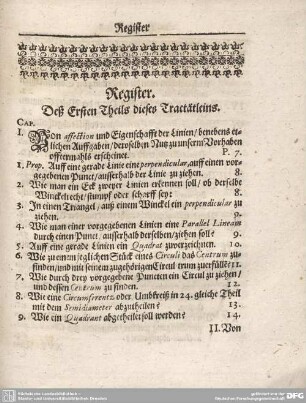 Register
Register.
Deß Ersten Theils dieses Tractätleins.
CAP.
I. Von affection und Eigenschafft der Linien / benebens et-
lichen Auffgaben / derselben Nutz zu unserm Vorhaben
offtermahls erscheinet. P. 7.
1. Prop. Auff eine gerade Linie eine perpendicular, auff einen vor-
gegebenen Punct / ausserhalb der Linie zu ziehen. 8.
2. Wie man ein Eck zweyer Linien erkennen soll / ob derselbe
Winckelrecht / stumpf oder scharff sey: 8.
3. In einen Triangel / auß einem Winckel ein perpendicular zu
ziehen. 9.
4. Wie man einer vorgegebenen Linien eine Parallel Lineam
durch einen Punct, ausserhalb derselben / ziehen soll? 9.
5. Auff eine gerade Linien ein Quadrat zu verzeichnen. 10.
6. Wie zu einem jeglichen Stück eines Circuli das Centrum zu
finden / und mit seinem zugehörigen Circul zu erfüllē? 11.
7. Wie durch drey vorgegebene Puncten ein Circul zu ziehen /
und dessen Centrum zu finden. 12.
8. Wie eine Circumferentz oder Umbkreiß in 24. gleiche Theil
mit dem Semidiameter abzutheilen? 13.
9. Wie ein Quadrant abgetheilet soll werden? 14.
II. Von